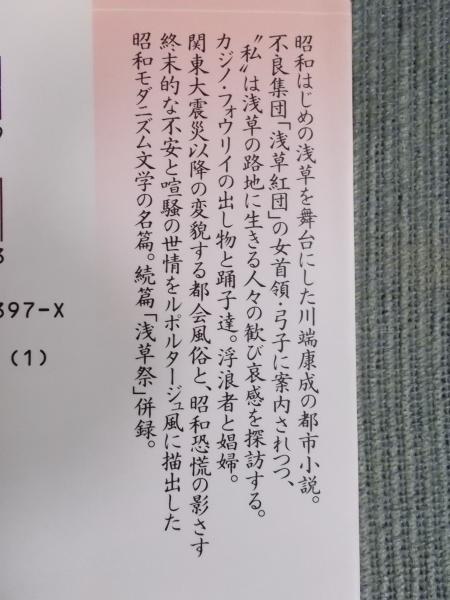 昭和はじめの浅草を舞台にした川端康成の都市小説。
不良集団「浅草紅団」の女首領・弓子に案内されつつ、
〝私〟は浅草の路地に生きる人々の歓び哀感を探訪する。
カジノ・フォウリイの出し物と踊子達。浮浪者と娼婦。
関東大震災以降の変貌する都会風俗と、昭和恐慌の影さす
終末的な不安と喧騒の世情をルポルタージュ風に描出した
昭和モダニズム文学の名篇。続篇「浅草祭」併録。
9
3
397-X
(1)